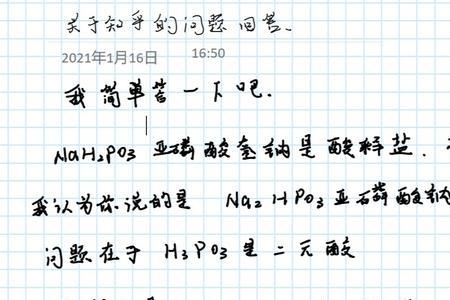 关于知乎的问题回答.
2021年1月16日 16:50
我简单答一下吧.
NaH₂PO₃ 亚磷酸氢钠是酸释盐.
我认为你说的是 Na₂HPO₃ 亚磷酸钠
问题在于 H₃PO₃ 是二元酸